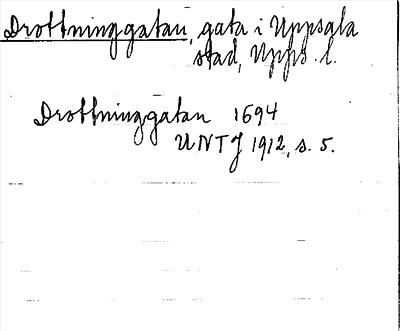 Drottninggatan, gata i Uppsala
stad, Upps. l.
Drottninggatan 1694
UNTJ 1912, s. 5.